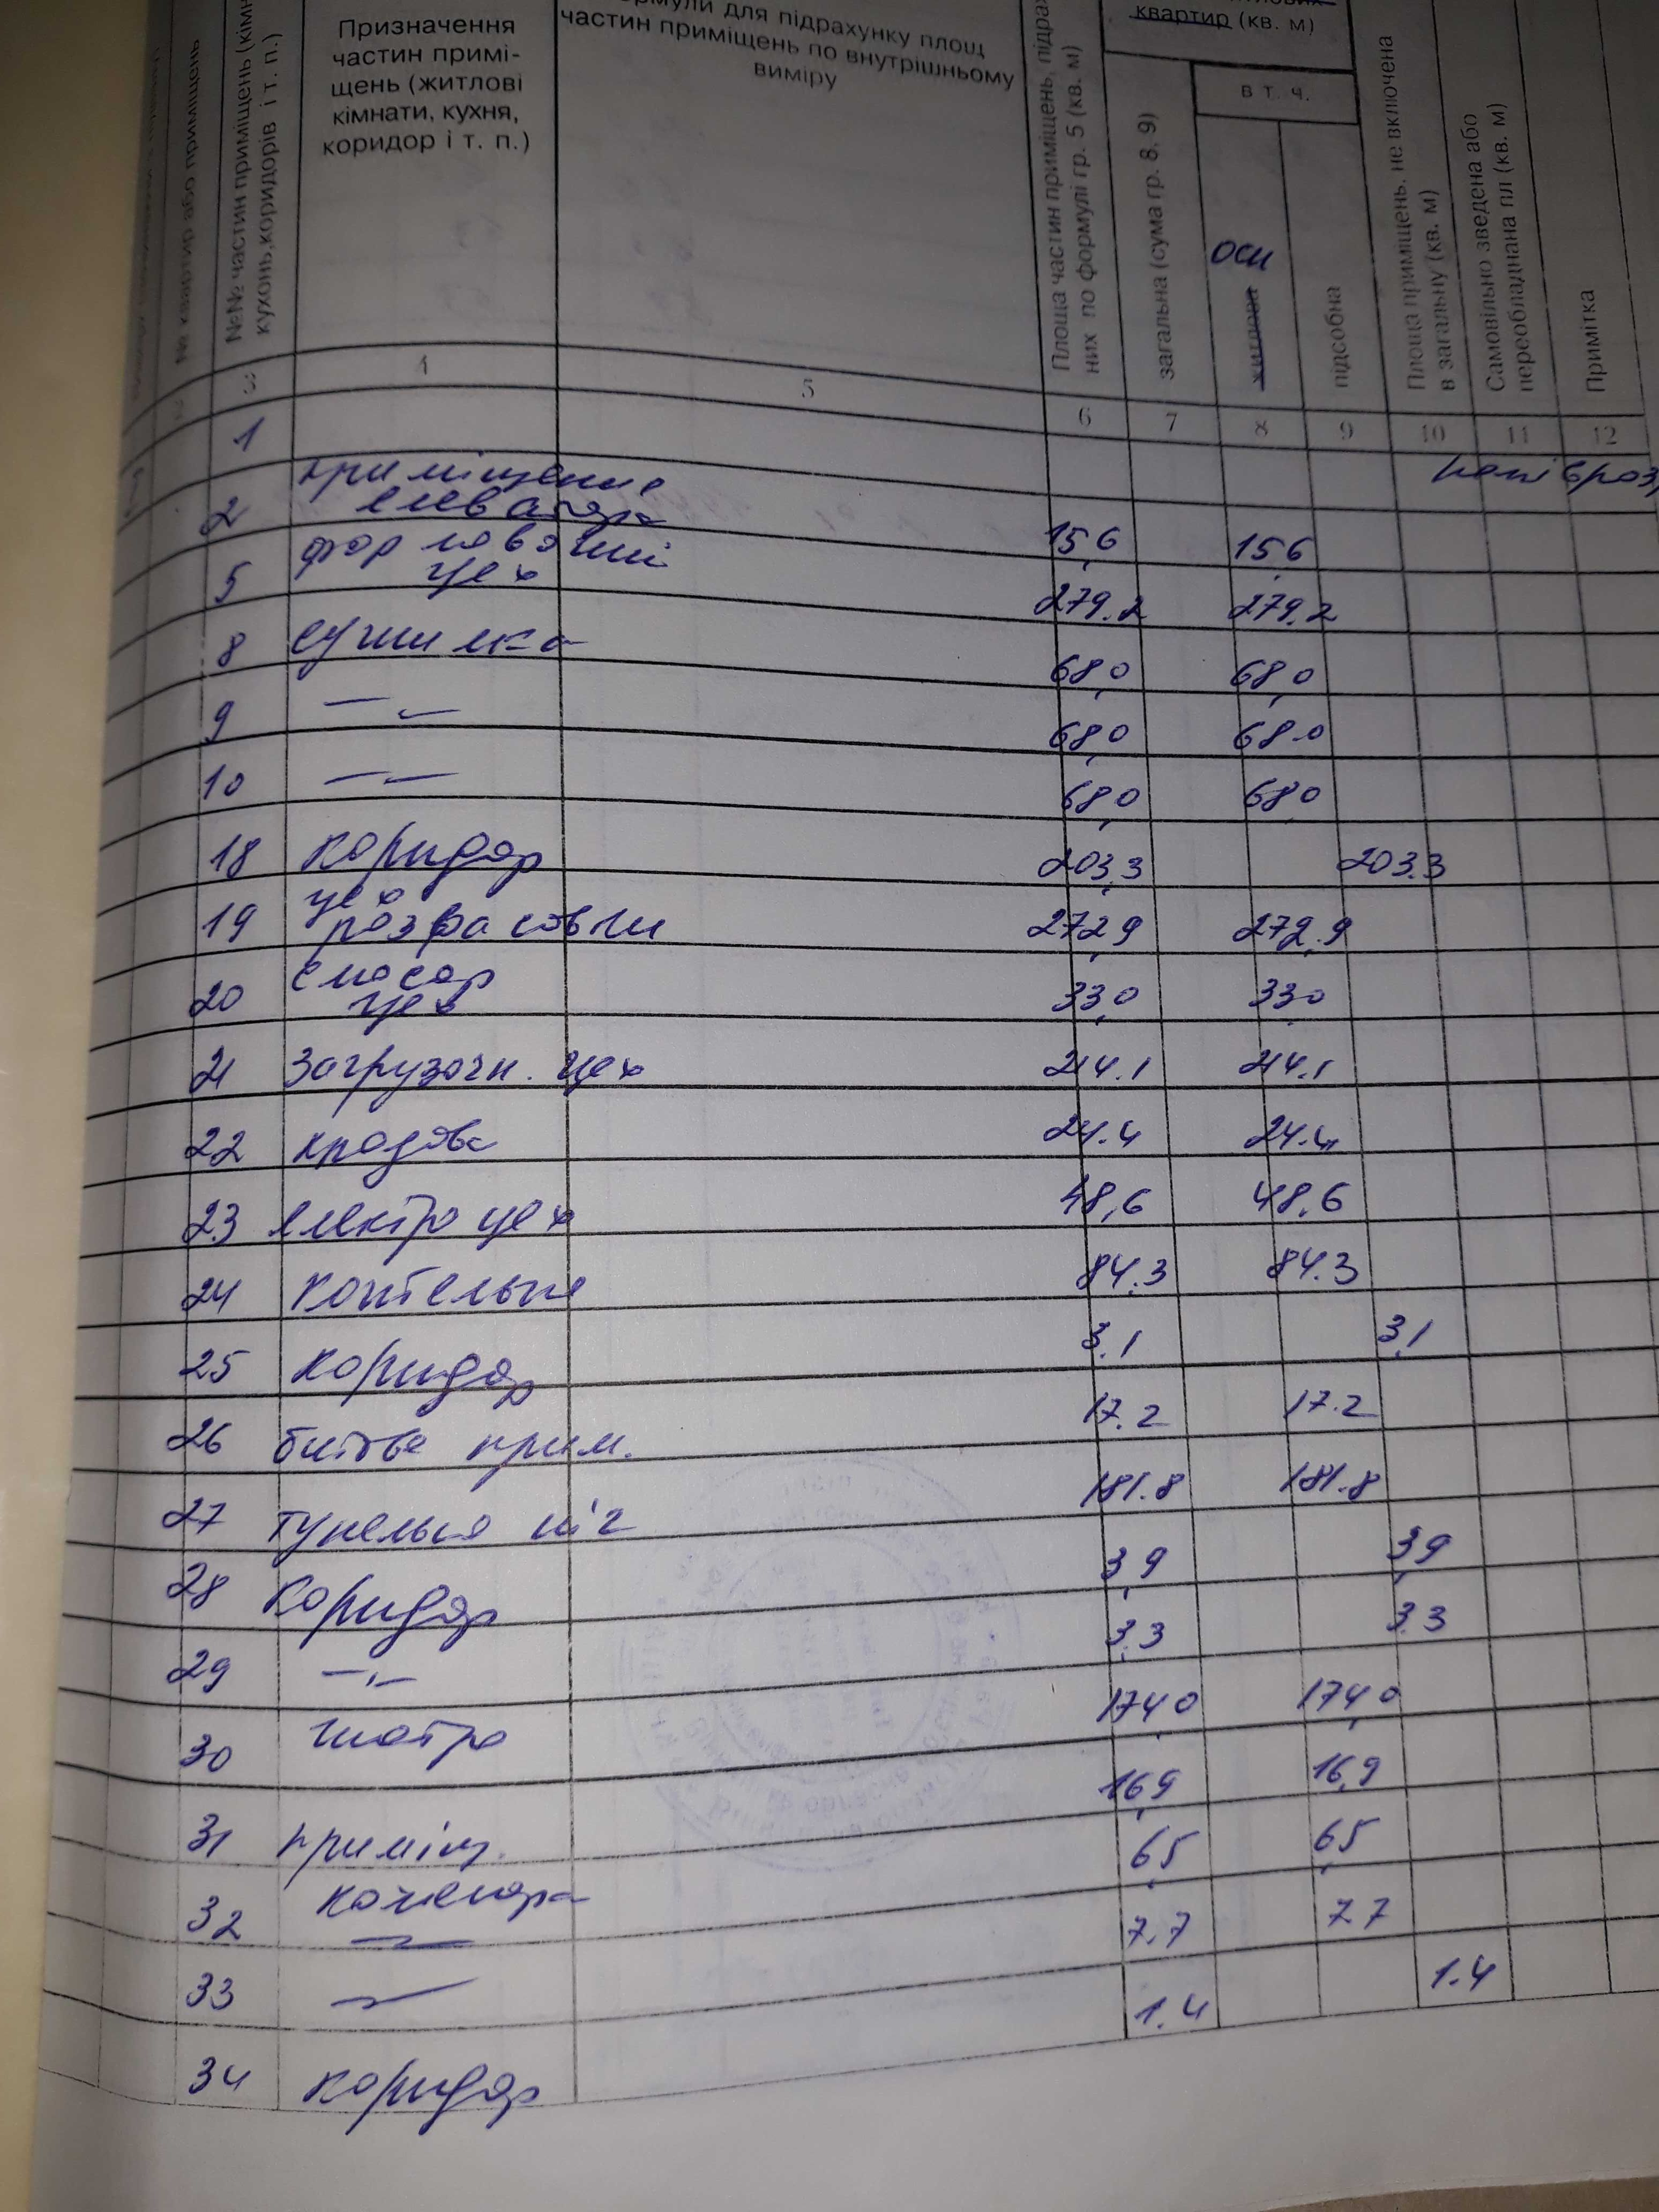 Призначення
частин примі-
щень (житлові
кімнати, кухня,
коридор і т. п.)
для підрахунку площ
частин приміщень по внутрішньому
виміру
№ квартир або приміщень
№№ частин приміщень
кухонь, коридорів і т. п.)
Площа частин приміщень,
них по формулі гр. 5 (кв. м)
квартир (кв. м)
загальна (сума гр. 8, 9)
в т. ч.
осн
житлова
підсобна
Площа приміщень, не включена
в загальну (кв. м)
Самовільно зведена або
переобладнана пл (кв. м)
Примітка
3 4 5 6 7 8 9 10 11 12
1
2 приміщення
елеватора 15,6 15,6
5 формовочний
цех 279.2 279.2
8 сушилка 68,0 68,0
9 —〃— 68,0 68.0
10 —〃— 68,0 68,0
18 коридор 203,3 203.3
19 цех
розфасовки 272,9 272,9
20 слюсар
цех 33,0 33,0
21 загрузочн. цех 214.1 214.1
22 кладова 24.4 24.4
23 електро цех 48,6 48,6
24 котельня 84.3 84.3
25 коридор 3,1 3,1
26 битове прим. 17.2 17.2
27 тунельна піч 181.8 181.8
28 коридор 3,9 3,9
29 —〃— 3,3 3,3
30 шатро 174,0 174,0
31 приміщ. 16,9 16,9
32 кочегара 6,5 6,5
33 —〃— 7.7 7.7
34 коридор 1.4 1.4